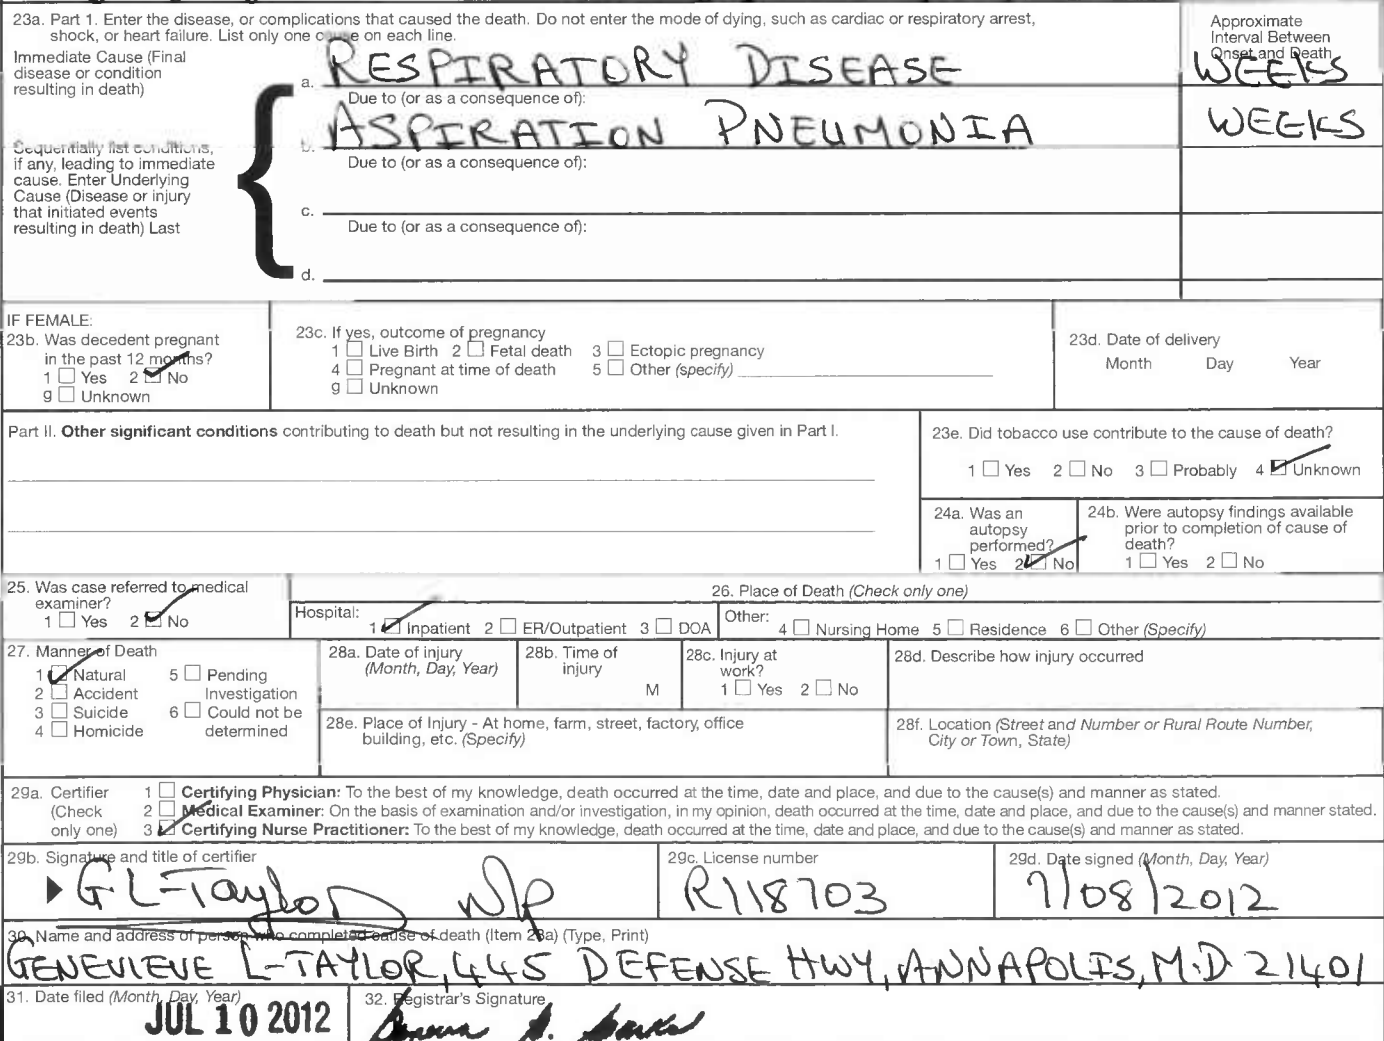 23a. Part 1. Enter the disease, or complications that caused the death. Do not enter the mode of dying, such as cardiac or respiratory arrest,
shock, or heart failure. List only one cause on each line.
Approximate
Interval Between
Onset and Death
Immediate Cause (Final
disease or condition
resulting in death)
a. RESPIRATORY DISEASE WEEKS
Due to (or as a consequence of):
b. ASPIRATION PNEUMONIA WEEKS
Sequentially list conditions,
if any, leading to immediate
cause. Enter Underlying
Cause (Disease or injury
that initiated events
resulting in death) Last
Due to (or as a consequence of):
c.
Due to (or as a consequence of):
d.
IF FEMALE:
23b. Was decedent pregnant
in the past 12 months?
1 ☐ Yes 2 ☑ No
9 ☐ Unknown
23c. If yes, outcome of pregnancy
1 ☐ Live Birth 2 ☐ Fetal death 3 ☐ Ectopic pregnancy
4 ☐ Pregnant at time of death 5 ☐ Other (specify)
9 ☐ Unknown
23d. Date of delivery
Month Day Year
Part II. Other significant conditions contributing to death but not resulting in the underlying cause given in Part I.
23e. Did tobacco use contribute to the cause of death?
1 ☐ Yes 2 ☐ No 3 ☐ Probably 4 ☑ Unknown
24a. Was an
autopsy
performed?
1 ☐ Yes 2 ☑ No
24b. Were autopsy findings available
prior to completion of cause of
death?
1 ☐ Yes 2 ☐ No
25. Was case referred to medical
examiner?
1 ☐ Yes 2 ☑ No
26. Place of Death (Check only one)
Hospital:
1 ☑ Inpatient 2 ☐ ER/Outpatient 3 ☐ DOA
Other:
4 ☐ Nursing Home 5 ☐ Residence 6 ☐ Other (Specify)
27. Manner of Death
1 ☑ Natural 5 ☐ Pending
2 ☐ Accident Investigation
3 ☐ Suicide 6 ☐ Could not be
4 ☐ Homicide determined
28a. Date of injury
(Month, Day, Year)
28b. Time of
injury
M
28c. Injury at
work?
1 ☐ Yes 2 ☐ No
28d. Describe how injury occurred
28e. Place of Injury - At home, farm, street, factory, office
building, etc. (Specify)
28f. Location (Street and Number or Rural Route Number,
City or Town, State)
29a. Certifier
(Check
only one)
1 ☐ Certifying Physician: To the best of my knowledge, death occurred at the time, date and place, and due to the cause(s) and manner as stated.
2 ☐ Medical Examiner: On the basis of examination and/or investigation, in my opinion, death occurred at the time, date and place, and due to the cause(s) and manner stated.
3 ☑ Certifying Nurse Practitioner: To the best of my knowledge, death occurred at the time, date and place, and due to the cause(s) and manner as stated.
29b. Signature and title of certifier
G L-Taylor NP
29c. License number
R118703
29d. Date signed (Month, Day, Year)
7/08/2012
30. Name and address of person who completed cause of death (Item 23a) (Type, Print)
GENEVIEVE L-TAYLOR, 445 DEFENSE HWY, ANNAPOLIS, M.D 21401
31. Date filed (Month, Day, Year)
JUL 10 2012
32. Registrar's Signature